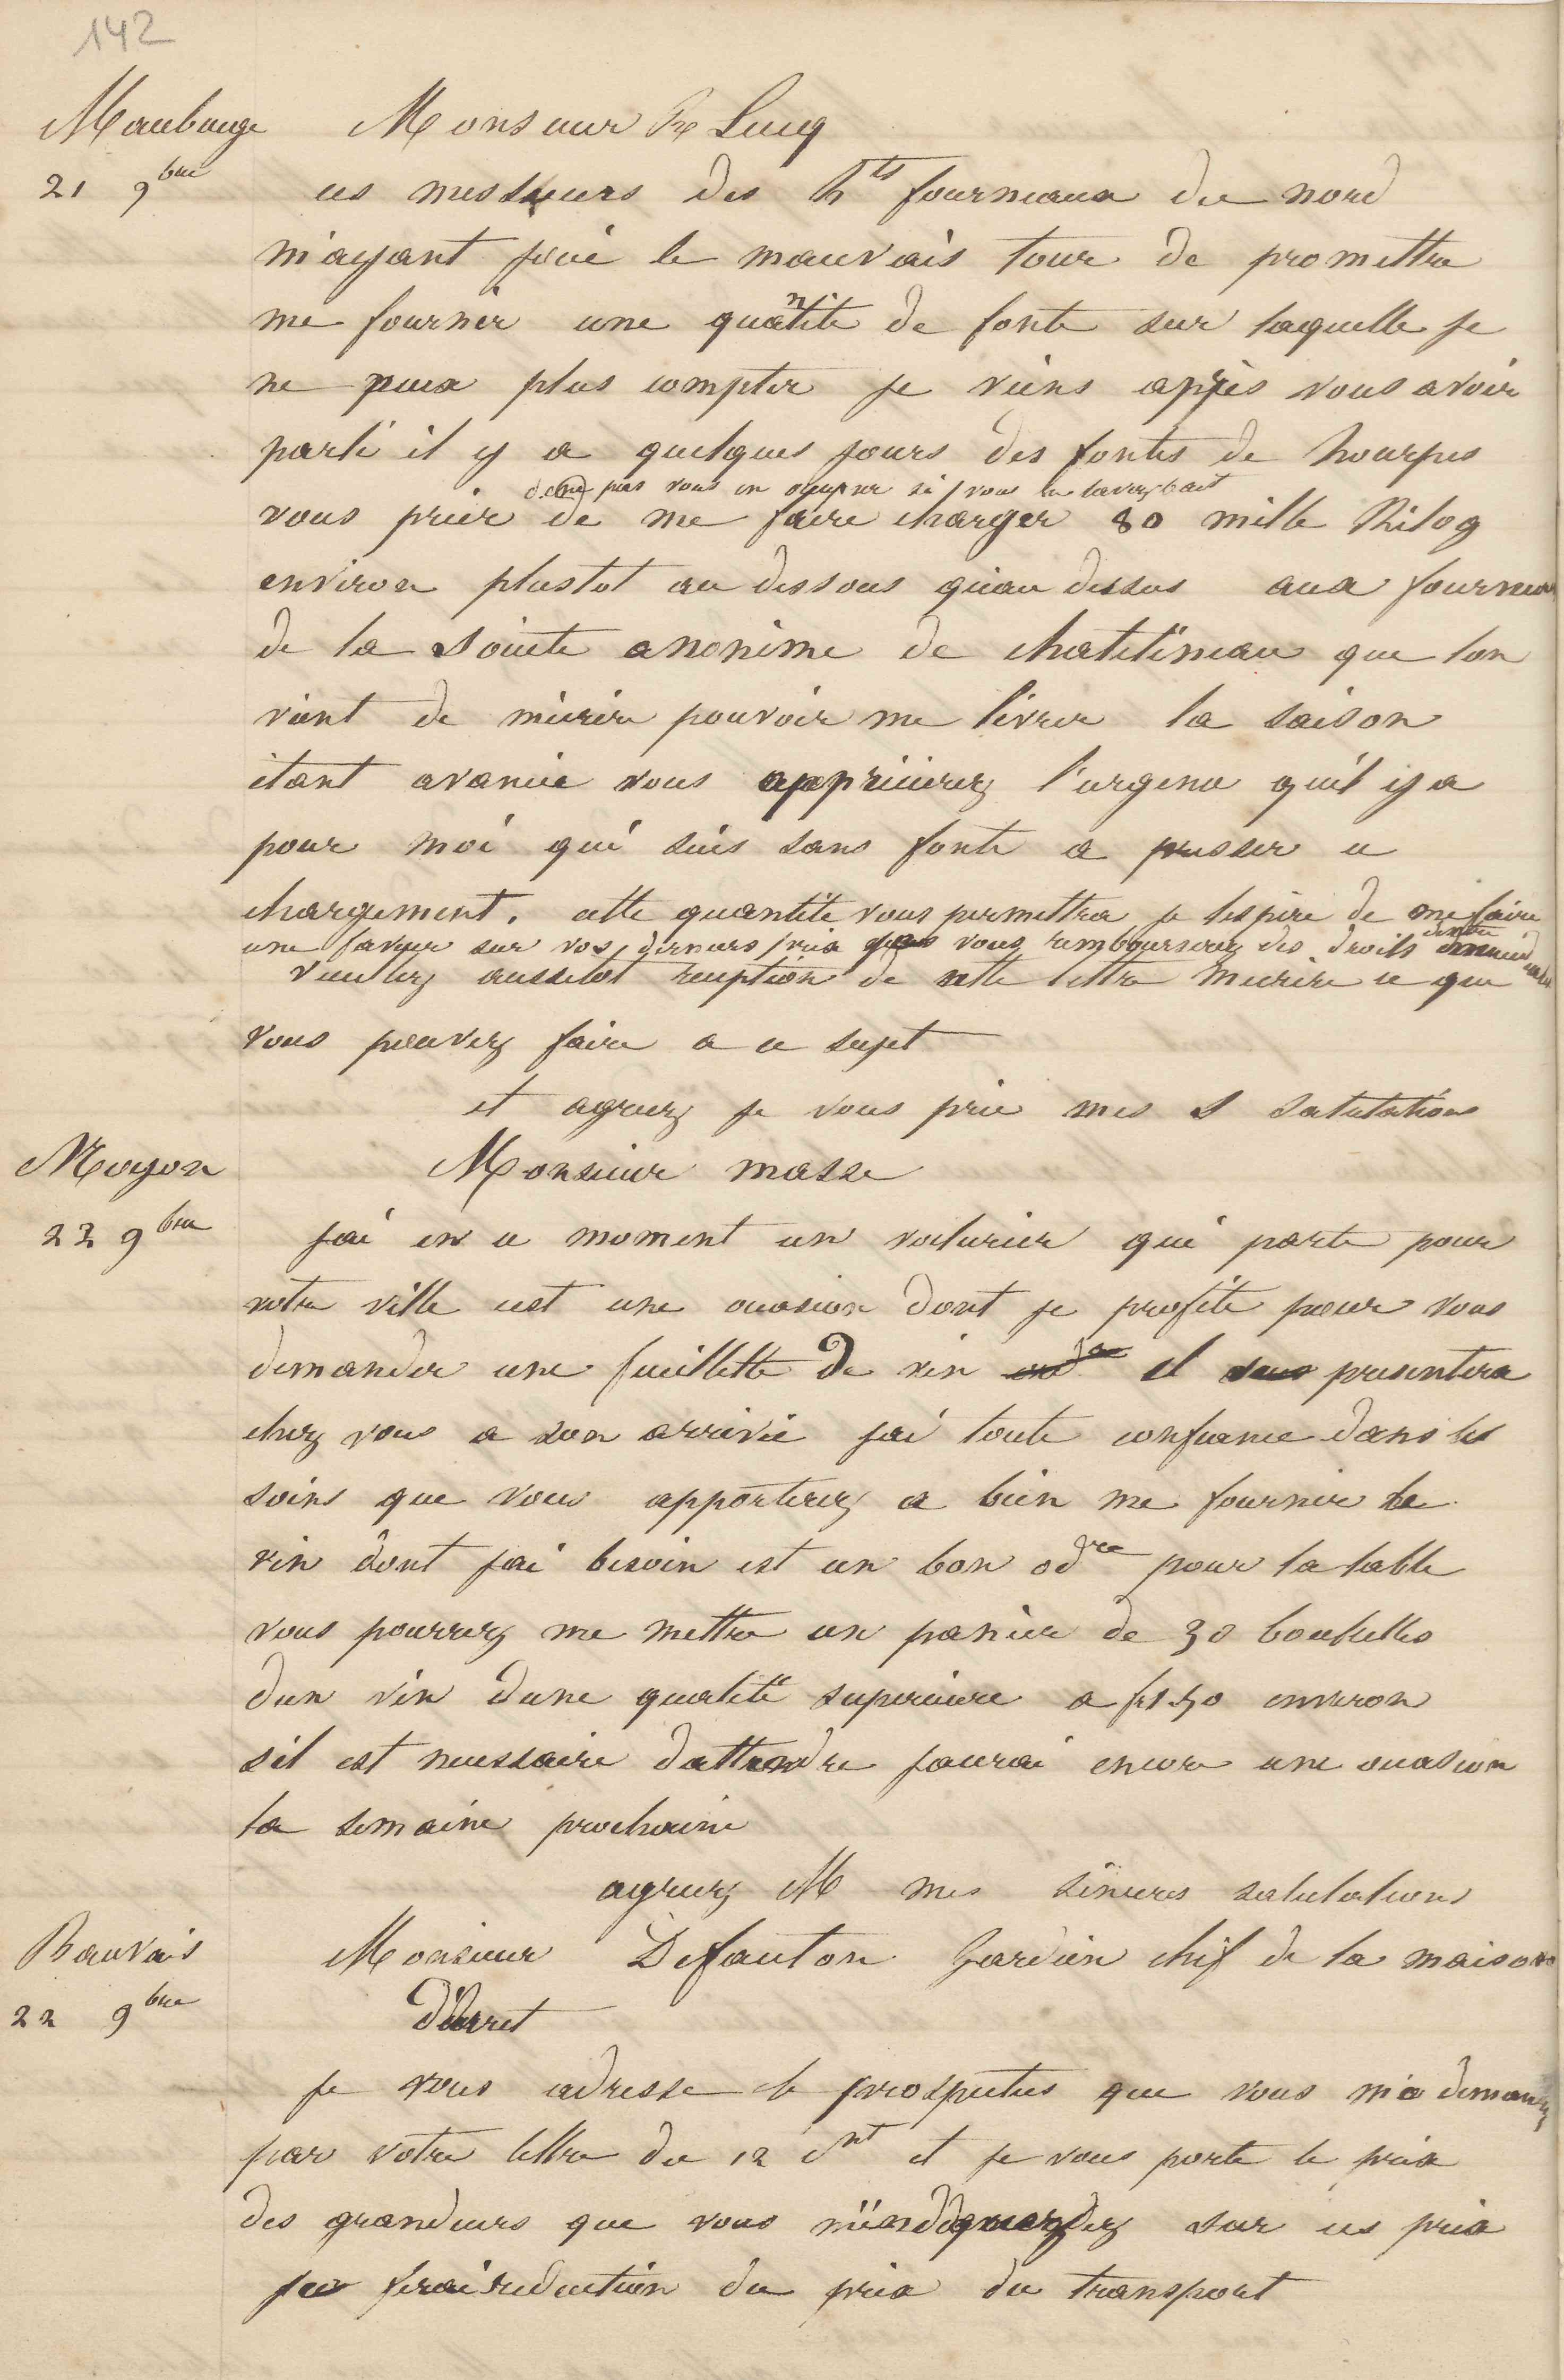 142
Maubeuge
21 9bre
Monsieur Pre Lucq
ces messieurs des hts fourneaux du nord
m'ayant joué le mauvais tour de promettre
me fournir une quantité de fonte sur laquelle je
ne peux plus compter je viens après vous avoir
parlé il y a quelques jours des fontes de hourpes
de ne pas vous en occuper si vous ne lavez fait
vous prier de me faire charger 80 mille Kilog
environ plustot au dessous qu'au dessus aux fourneaux
de la Société anonime de chatelineau que lon
vient de m'écrire pouvoir me livrer la saison
étant avancée vous apprécierez l'urgence qu'il y a
pour moi qui suis sans fonte a presser ce
chargement. cette quantité vous permettra je lespère de me faire
une faveur sur vos derniers prix vous rembourserez des droits dentrée
Veuillez aussitot reception de cette lettre mecrire ce que
vous pouvez faire a ce sujet
et agreez je vous prie mes S salutations
Noyon
22 9bre
Monsieur masse
jai en ce moment un voiturier qui parte pour
votre ville cest une occasion dont je profite pour vous
demander une feuillette de vin il presentera
chez vous a son arrivée jai toute confiance dans les
soins que vous apporterez a bien me fournir le
vin dont jai besoin est un bon odre pour la table
vous pourrez me mettre un panier de 30 bouteilles
dun vin dune qualité superieure a f 1.50 environ
sil est necessaire dattendre jaurai encore une occasion
la semaine prochaine
agreez M mes sincères salutations
Bauvais
22 9bre
Monsieur Defauton Gardien chef de la maison
d'arret
je vous adresse le prospectus que vous m'a demandez
par votre lettre du 12 ct et je vous porte le prix
des grandeurs que vous m'indiquez sur ces prix
je ferai reduction du prix du transport